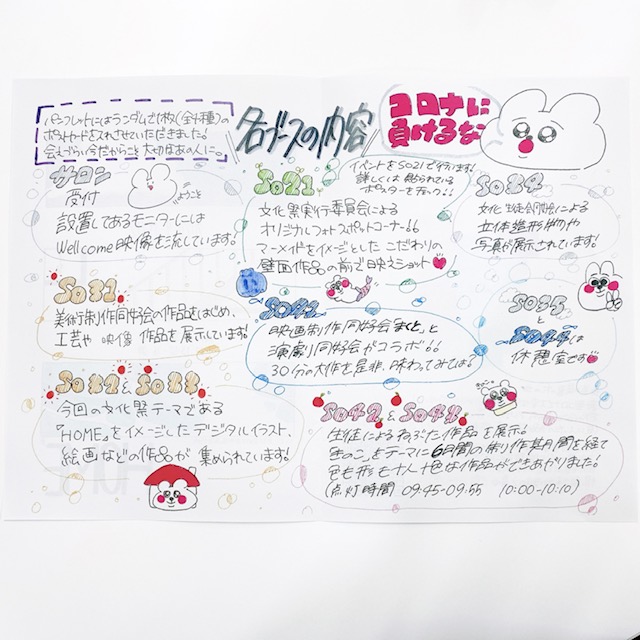 パンフレットにはランダムで1枚(全4種)の
ポストカードを入れさせていただきました!
会えづらい今だからこそ大切なあの人に。
各ブースの内容
コロナに
負けるな
サロン
受付
ようこそ
設置してあるモニターには
Wellcome映像を流しています!
SO21
イベントをSO21で行います!
詳しくは貼られている
ポスターをチェック!!
文化祭実行委員会による
オリジナルフォトスポットコーナー!!
マーメイドをイメージとしたこだわりの
壁画作品の前で映えショット
SO24
文化生徒会同好会による
立体造形物や
写真が展示されています!
SO31
美術制作同好会の作品をはじめ、
工芸や映像作品を展示しています!
SO41
映画制作同好会「まくと」と
演劇同好会がコラボ!!
30分の大作を是非、味わってみては?
SO35
と
SO44は
休憩室です
SO32とSO33
今回の文化祭テーマである
『HOME』をイメージしたデジタルイラスト、
絵画などの作品が集められています!
SO42とSO43
生徒によるねぶた作品を展示!
きのこをテーマに6月間の制作期間を経て
色も形も十人十色な作品ができあがりました!
(点灯時間 09:45-09:55 10:00-10:10)